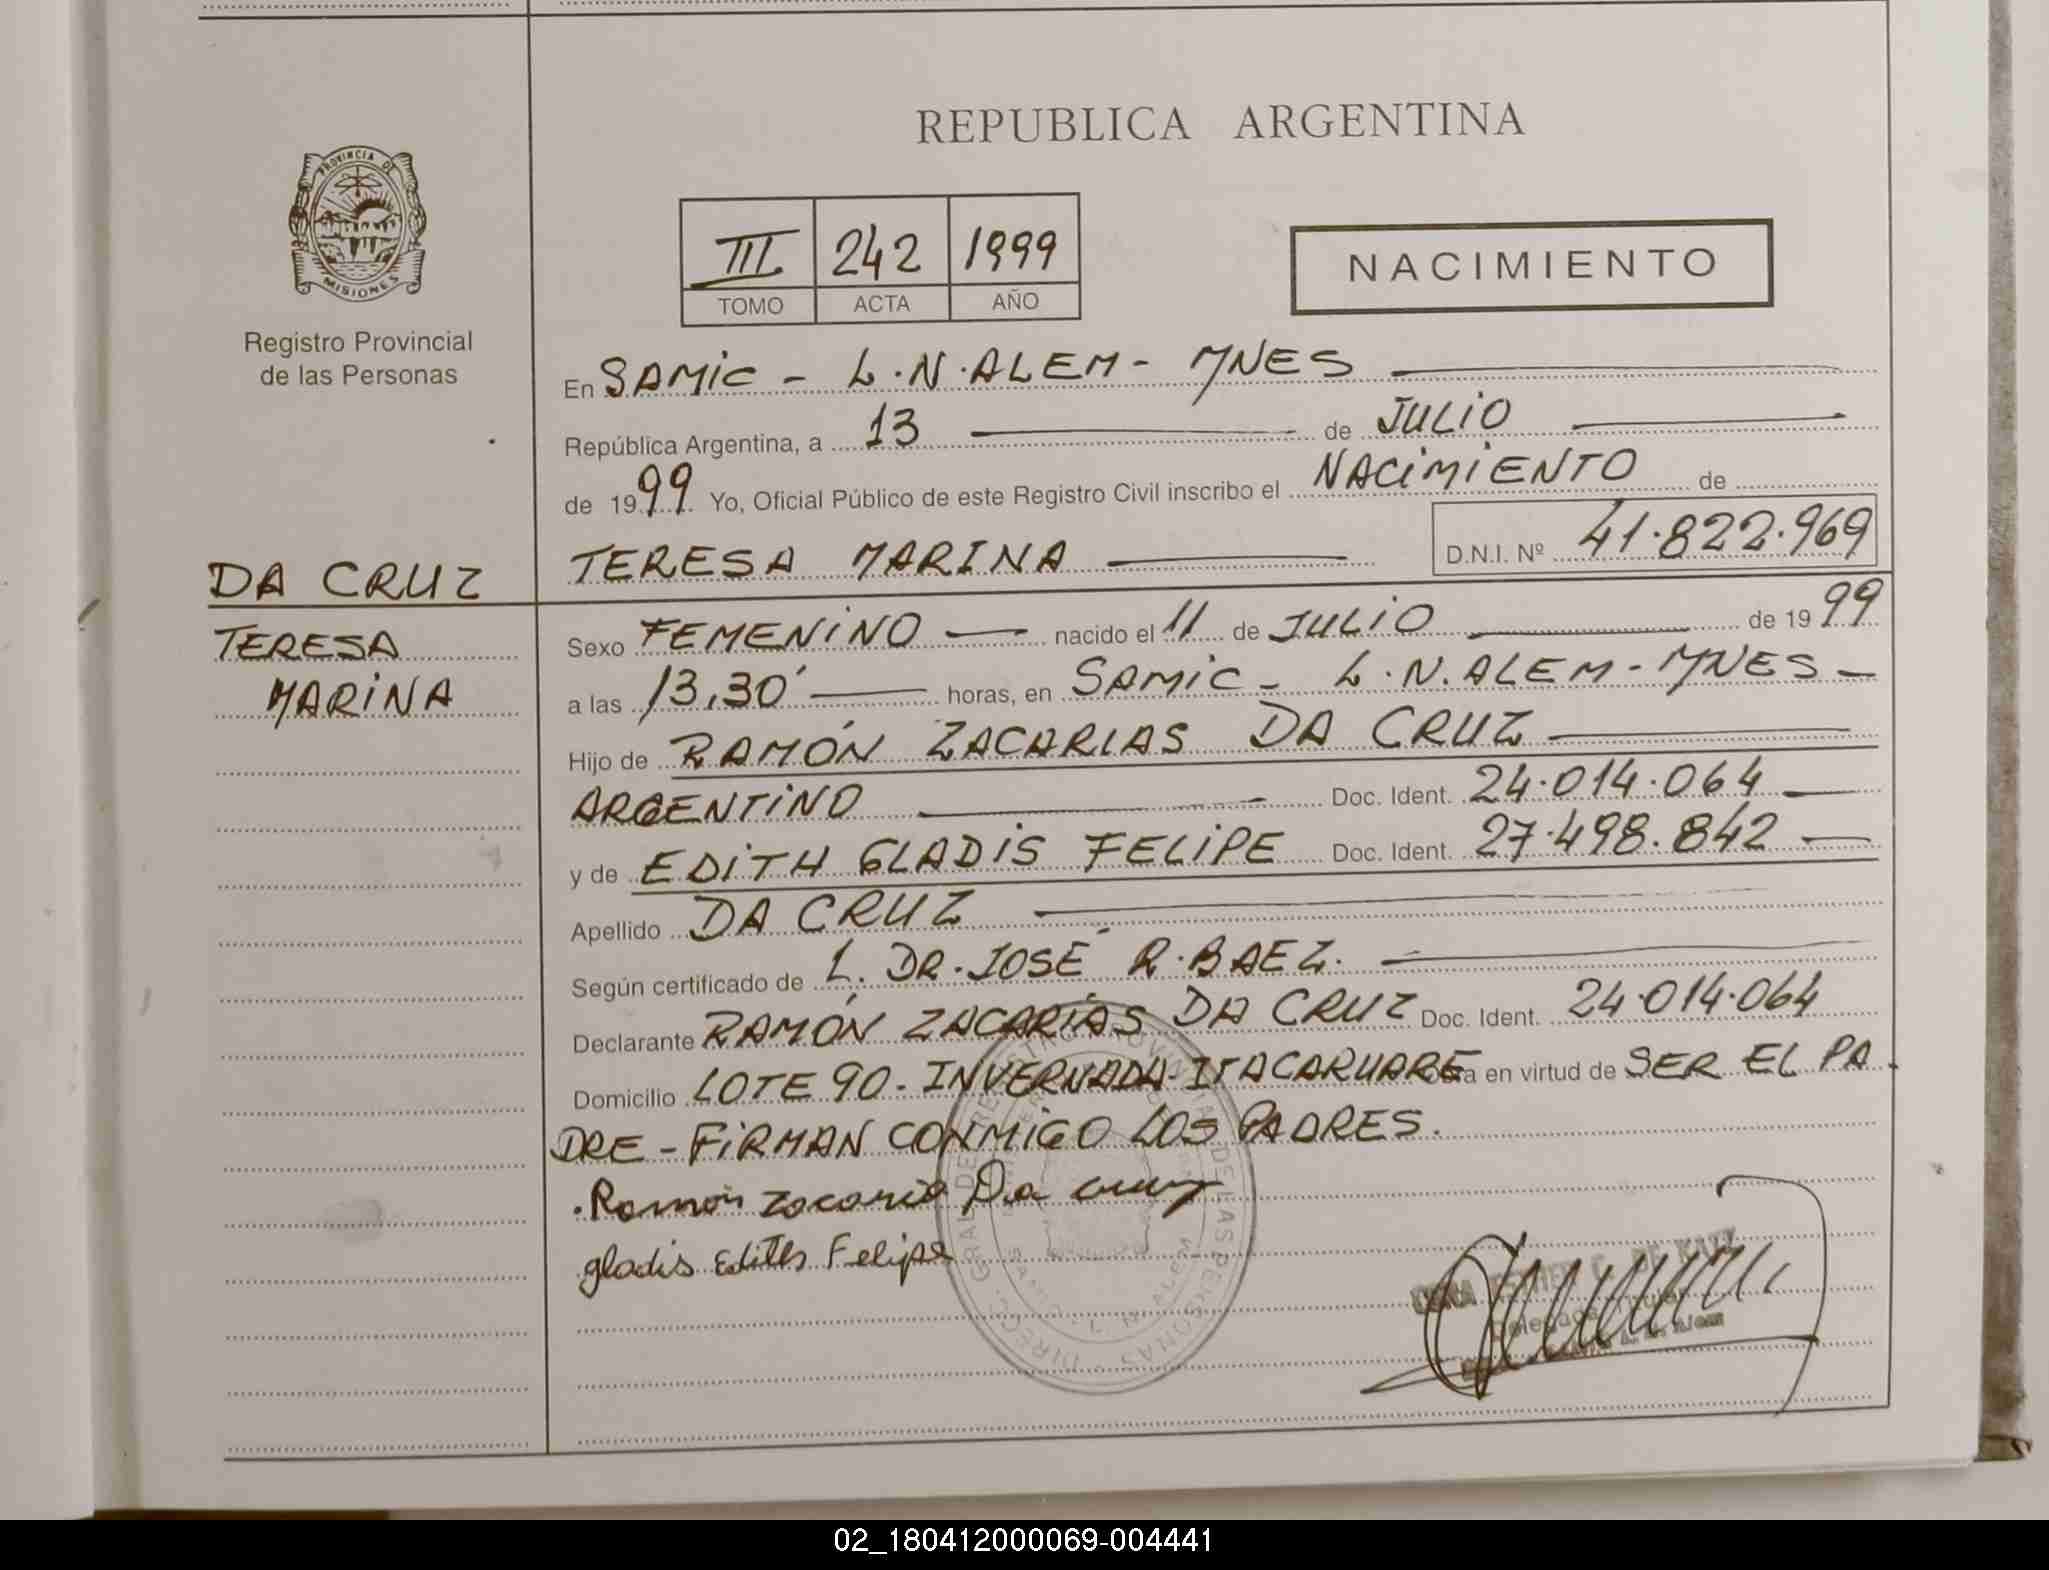 REPUBLICA ARGENTINA
PROVINCIA DE
MISIONES
Registro Provincial
de las Personas
III 242 1999
TOMO ACTA AÑO
NACIMIENTO
En SAMIC - L.N.ALEM - MNES
República Argentina, a 13 de JULIO
de 1999 Yo, Oficial Público de este Registro Civil inscribo el NACIMIENTO de
TERESA MARINA D.N.I. Nº 41.822.969
DA CRUZ
TERESA
MARINA
Sexo FEMENINO nacido el 11 de JULIO de 1999
a las 13,30' horas, en SAMIC - L.N.ALEM - MNES -
Hijo de RAMÓN ZACARIAS DA CRUZ
ARGENTINO Doc. Ident. 24.014.064
y de EDITH GLADIS FELIPE Doc. Ident. 27.498.842
Apellido DA CRUZ
Según certificado de L. DR. JOSÉ R. BAEZ.
Declarante RAMÓN ZACARÍAS DA CRUZ Doc. Ident. 24.014.064
Domicilio LOTE 90 - INVERNADA - ITACARUARÉ en virtud de SER EL PA
DRE - FIRMAN CONMIGO LOS PADRES.
Ramón Zacaria Da Cruz
gladis Edith Felipe
SAMIC - L. N. ALEM
Delegada Titular
02_180412000069-004441